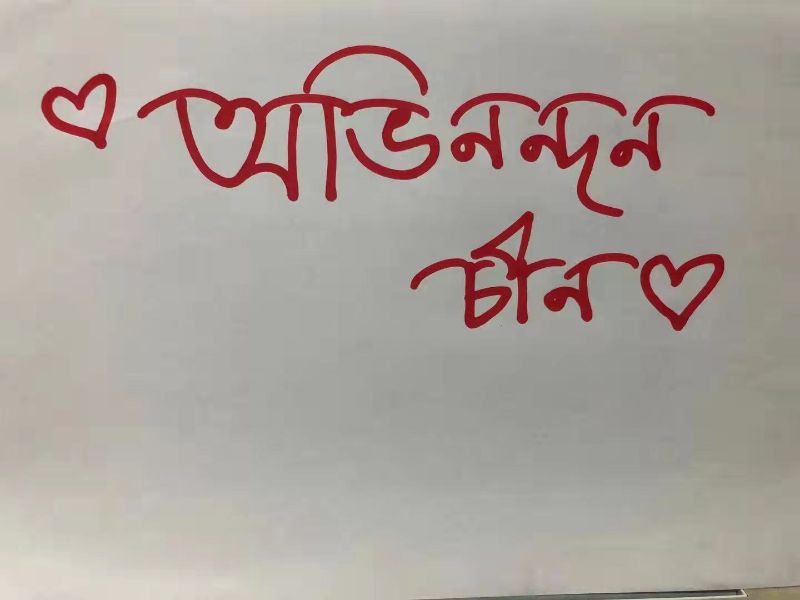 অভিনন্দন
চীন